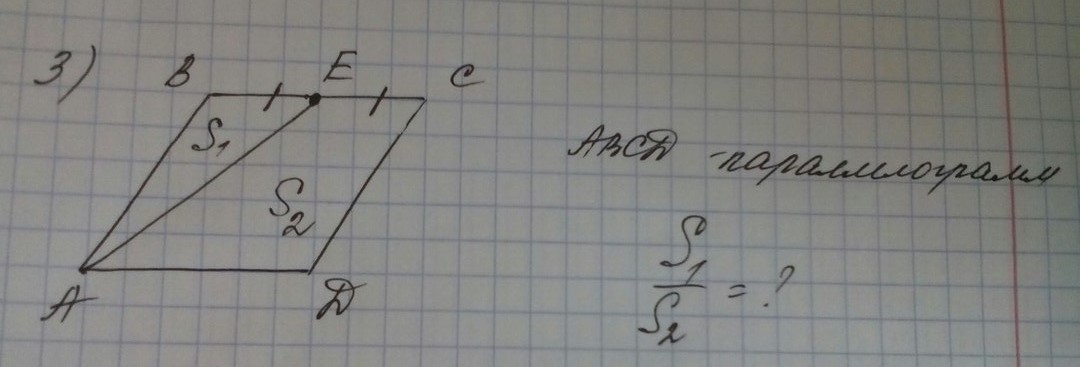 3)
B E C
S₁
S₂
A D
ABCD - параллелограмм
S₁
S₂ = ?